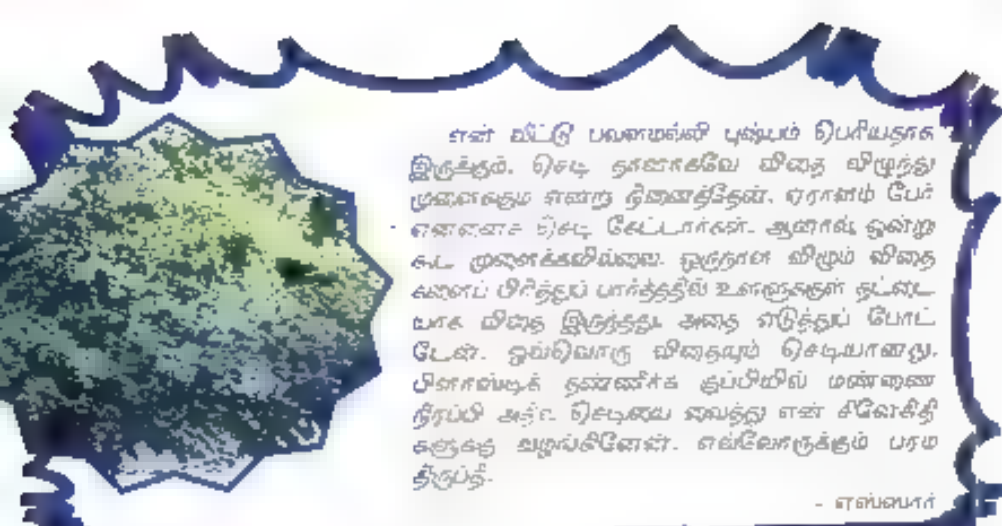 என் வீட்டு பவளமல்லி புஷ்பம் பெரியதாக
இருக்கும். செடி தானாகவே விதை விழுந்து
முளைக்கும் என்று நினைத்தேன். ஏராளம் பேர்
என்னைச் செடி கேட்டார்கள். ஆனால், ஒன்று
கூட முளைக்கவில்லை. ஒருநாள் விழும் விதை
களைப் பிரித்துப் பார்த்ததில் உள்ளுக்குள் தட்டை
யாக விதை இருந்தது. அதை எடுத்துப் போட்
டேன். ஒவ்வொரு விதையும் செடியானது.
பிளாஸ்டிக் தண்ணீர்க் குப்பியில் மண்ணை
நிரப்பி அதில் செடியை வைத்து என் சிநேகிதி
களுக்கு வழங்கினேன். எல்லோருக்கும் பரம
திருப்தி.